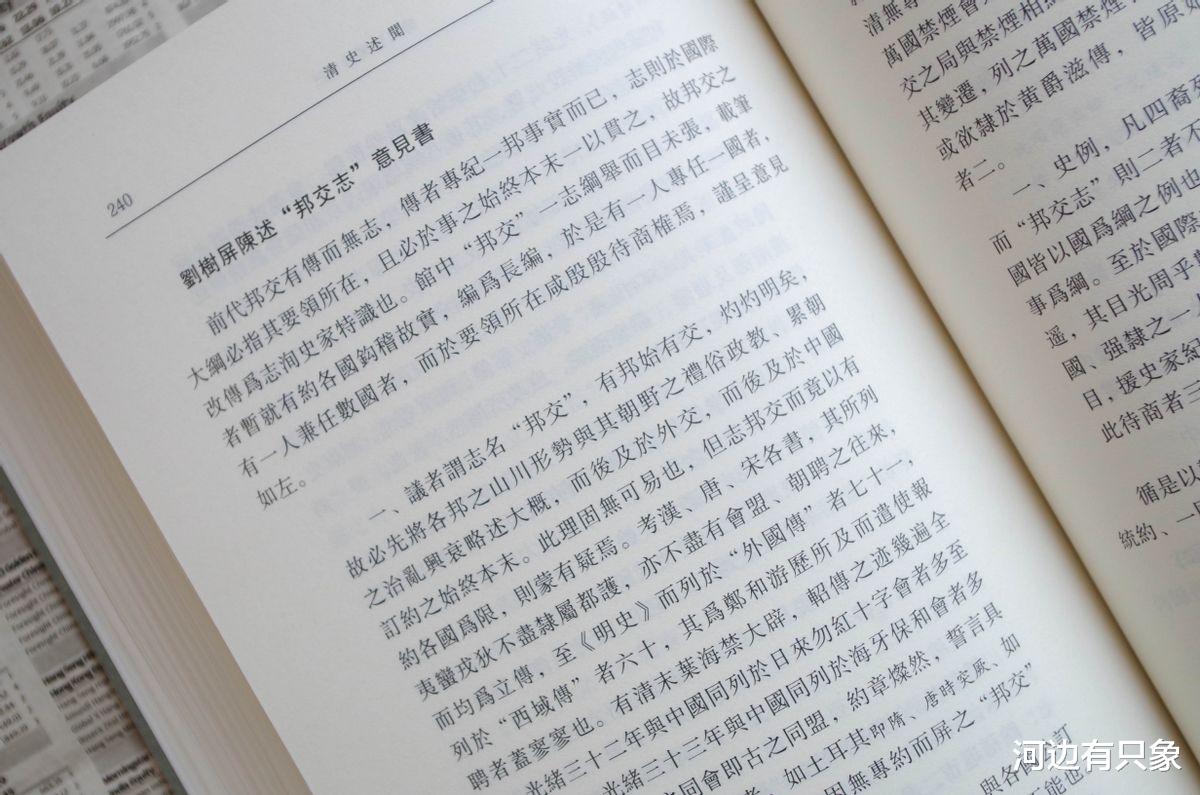 清史述聞
240
劉樹屏陳述“邦交志”意見書
前代邦交有傳而無志，傳者專紀一邦事實而已，志則於國際
大綱必指其要領所在，且必於事之始終本末一以貫之，故邦交之
改傳爲志洵史家特識也。館中“邦交”一志綱舉而目未張，載筆
者暫就有約各國鈎稽故實，編爲長編，於是有一人專任一國者，
有一人兼任數國者，而於要領所在咸殷殷待商榷焉，謹呈意見
如左。
一、議者謂志名“邦交”，有邦始有交，灼灼明矣，
故必先將各邦之山川形勢與其朝野之禮俗政教、累朝
之治亂興衰略述大概，而後及於外交，而後及於中國
訂約之始終本末。此理固無可易也，但志邦交而竟以有
約各國爲限，則蒙有疑焉。考漢、唐、宋各書，其所列
夷蠻戎狄不盡隸屬都護，亦不盡有會盟、朝聘之往來，
而均爲立傳，至《明史》而列於“外國傳”者七十一，
列於“西域傳”者六十，其爲鄭和游歷所及而遣使報
聘者蓋寥寥也。有清末葉海禁大辟，軺傳之迹幾遍全
光緒三十二年與中國同列於日來勿紅十字會者多至
光緒三十三年與中國同列於海牙保和會者多
之同會即古之同盟，約章燦然，誓言具
，如土耳其即隋、唐時突厥、如
因無專約而屏之“邦交”
與各國訂
不能也
清無專
萬國禁煙會
交之局與禁煙相
其變遷，列之萬國禁煙
或欲隸於黃爵滋傳，皆原始
者二。
一、史例，凡四裔列
而“邦交志”則二者不
國皆以國爲綱之例也
事爲綱。至於國際
遥，其目光周乎
國、强隸之一
目，援史家紀
此待商者三
循是以
統約、一
河边有只象